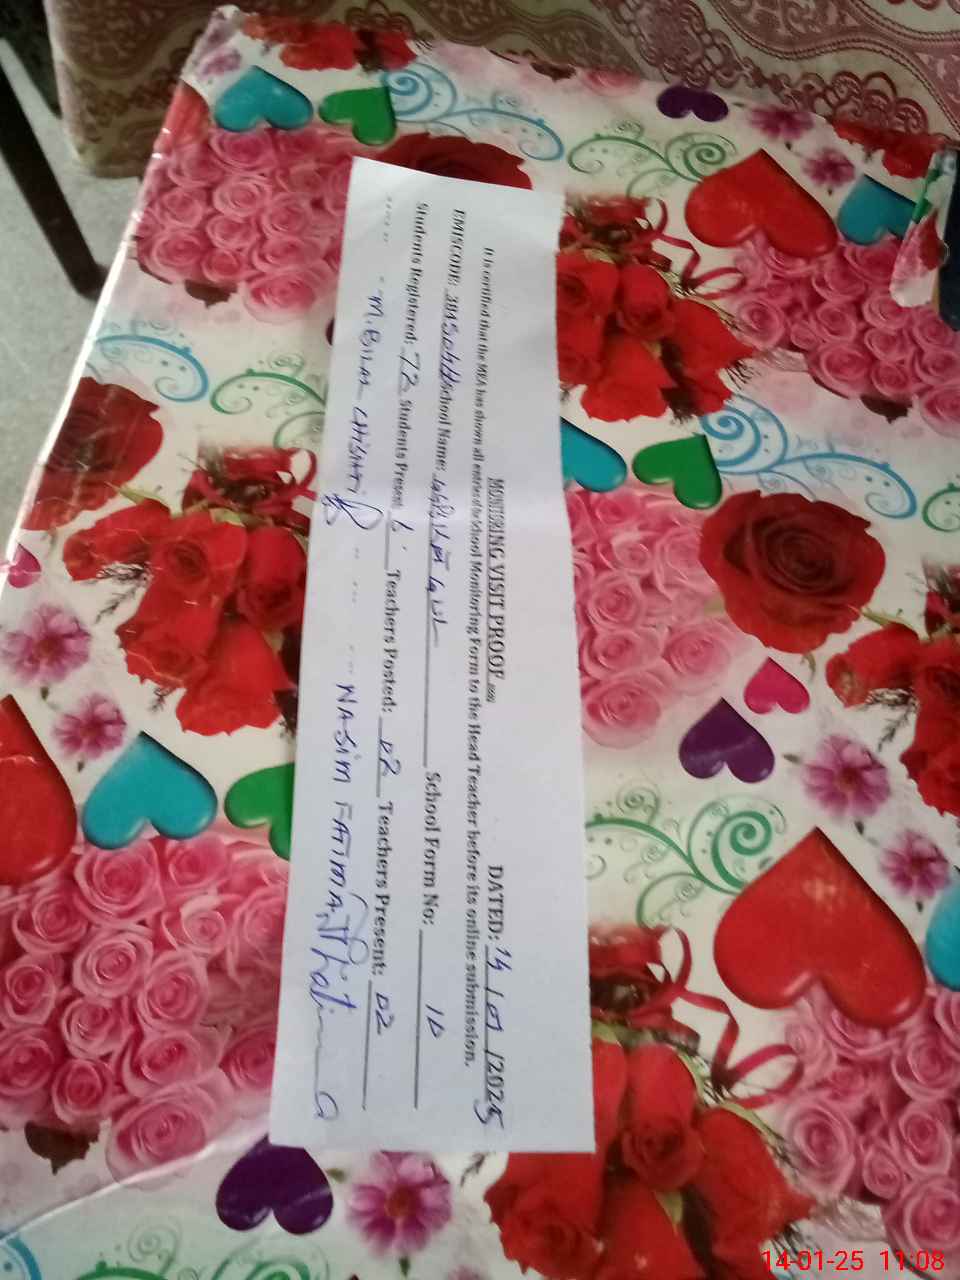 MONITORING VISIT PROOF DATED: 14/01/2025
It is certified that the MEA has shown all entries of to School Monitoring Form to the Head Teacher before its online submission.
EMISCODE: School Name: School Form No: 10
Students Registered: 72 Students Present 6 Teachers Posted: 02 Teachers Present: 02
M. BILAL CHISHTI NASIM FATIMA
14-01-25 11:08